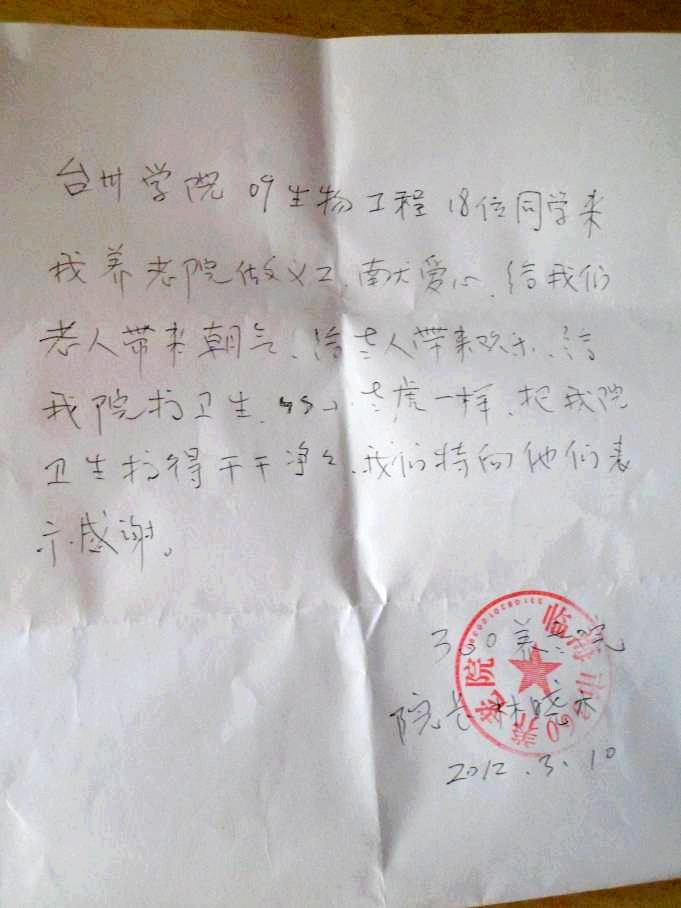 台州学院09生物工程18位同学来
我养老院做义工,献爱心,给我们
老人带来朝气、给老人带来欢乐、给
我院打卫生,小老虎一样,把我院
卫生打得干干净々,我们特向他们表
示感谢。
360养老院
院长 林晓
2012.3.10
临海市360养老院